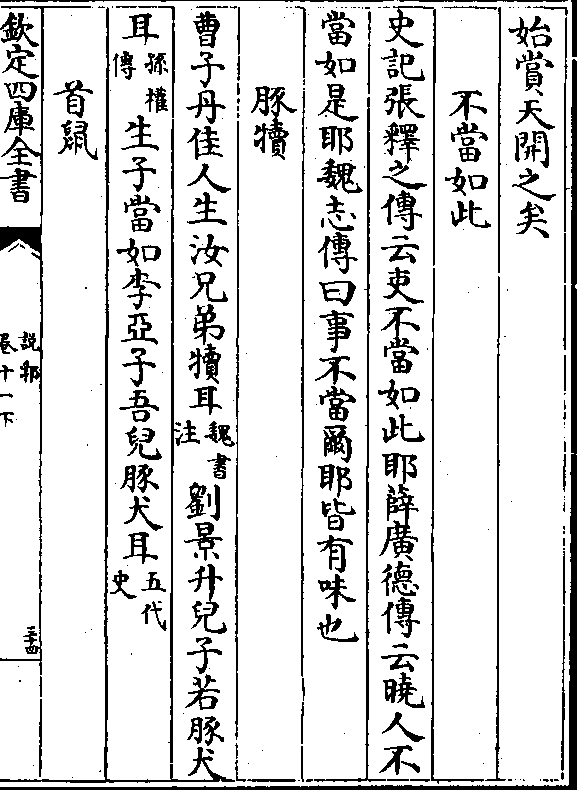 始賞天開之矣
不當如此
史記張釋之傳云吏不當如此耶薛廣德傳云曉人不
當如是耶魏志傳曰事不當爾耶皆有味也
豚犢
曹子丹佳人生汝兄弟犢耳魏書注劉景升兒子若豚犬
耳孫權傳生子當如李亞子吾兒豚犬耳五代史
首鼠
欽定四庫全書
說郛
卷十一下
三十四